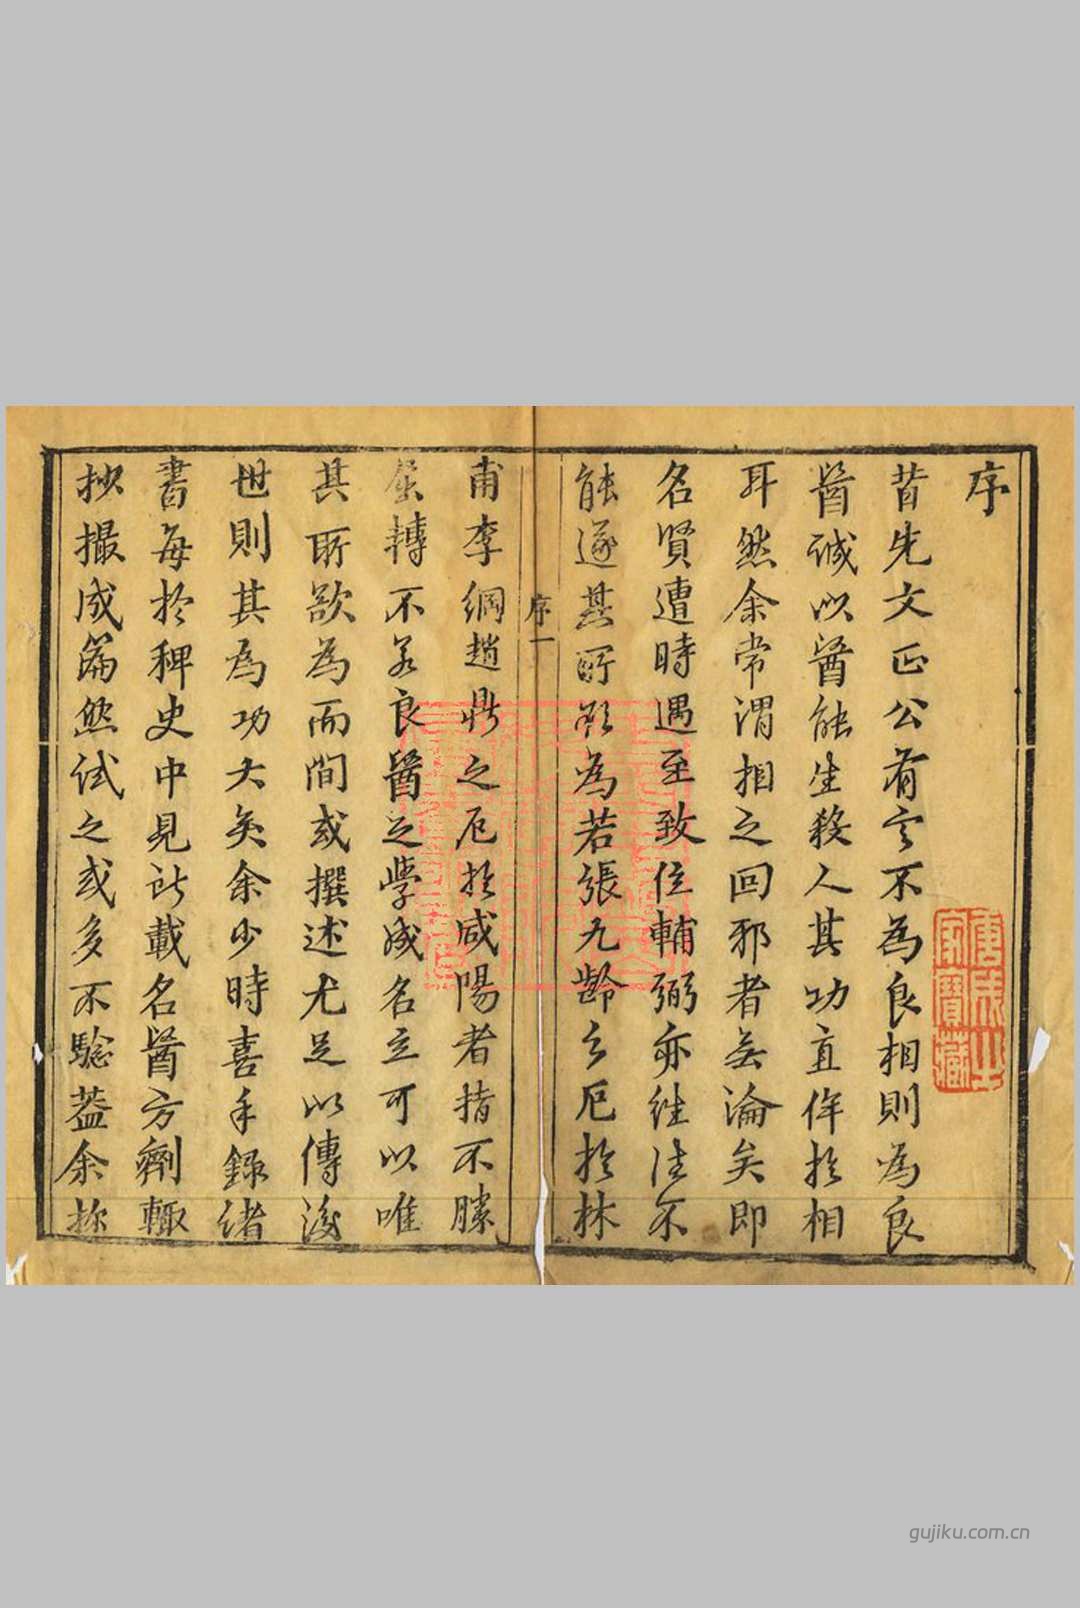 序
昔先文正公有言不為良相則為良
醫誠以醫能生殺人其功直侔於相
耳然余常謂相之回邪者無論矣即
名賢遭時遇至致位輔弼亦往往不
能遂其所欲為若張九齡之厄於林
序一
甫李綱趙鼎之厄於咸陽者指不勝
屈轉不若良醫之學成名立可以唯
其所欲為而間或撰述尤足以傳後
世則其為功大矣余少時喜手錄緒
書每於稗史中見所載名醫方劑輒
抄撮成篇然試之或多不驗蓋余於
唐成之家寶藏
gujiku.com.cn